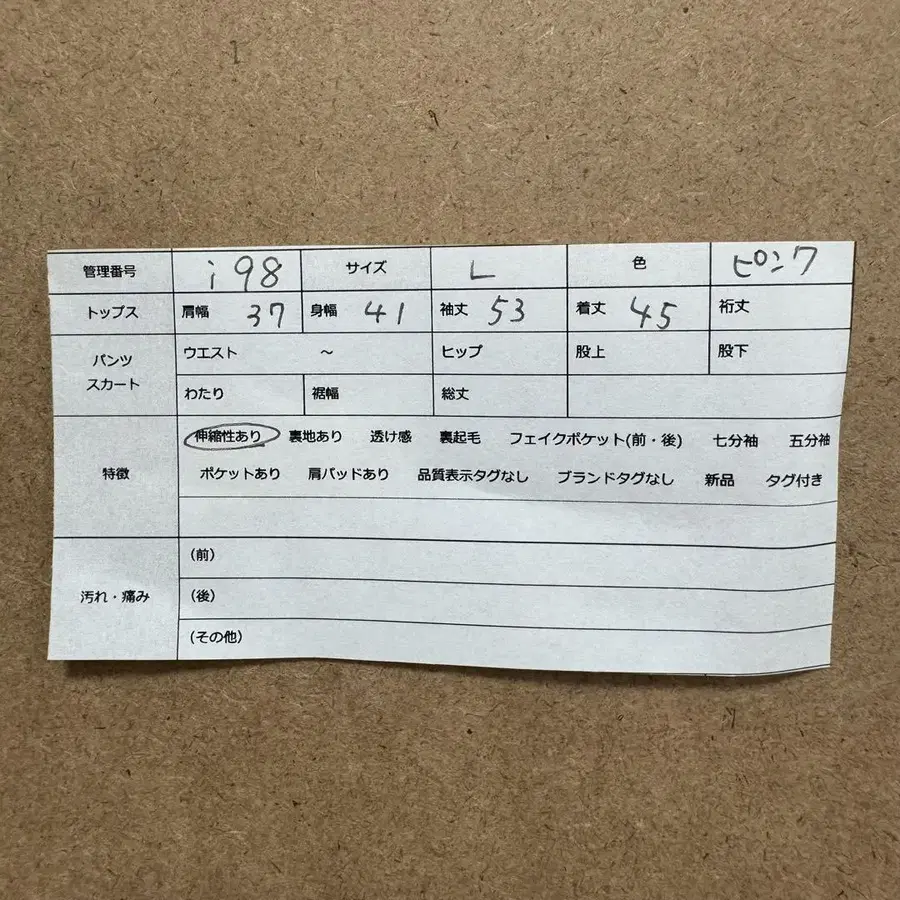 管理番号 i98 サイズ L 色 ピンク
トップス 肩幅 37 身幅 41 袖丈 53 着丈 45 裄丈
パンツ
スカート
ウエスト ～ ヒップ 股上 股下
わたり 裾幅 総丈
特徴
伸縮性あり 裏地あり 透け感 裏起毛 フェイクポケット(前・後) 七分袖 五分袖
ポケットあり 肩パッドあり 品質表示タグなし ブランドタグなし 新品 タグ付き
汚れ・痛み
（前）
（後）
（その他）